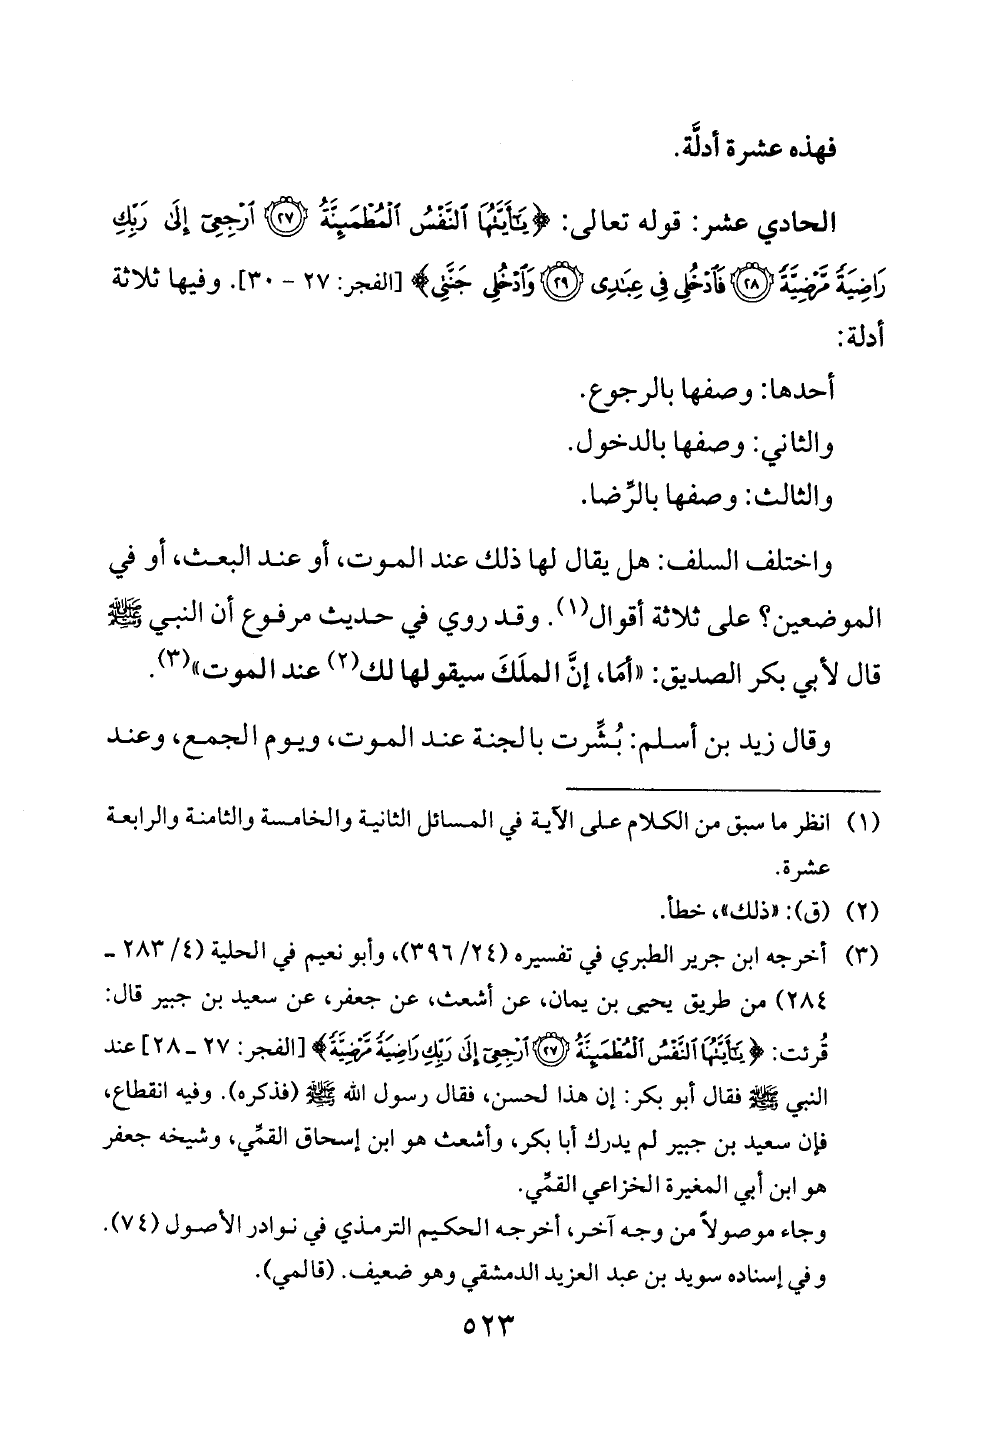 فهذه عشرة أدلَّة.
الحادي عشر: قوله تعالى: ﴿يَٰٓأَيَّتُهَا ٱلنَّفْسُ ٱلْمُطْمَئِنَّةُ ۝٢٧ ٱرْجِعِىٓ إِلَىٰ رَبِّكِ
رَاضِيَةً مَّرْضِيَّةً ۝٢٨ فَٱدْخُلِى فِى عِبَٰدِى ۝٢٩ وَٱدْخُلِى جَنَّتِى﴾ [الفجر: ٢٧ - ٣٠]. وفيها ثلاثة
أدلة:
أحدها: وصفها بالرجوع.
والثاني: وصفها بالدخول.
والثالث: وصفها بالرِّضا.
واختلف السلف: هل يقال لها ذلك عند الموت، أو عند البعث، أو في
الموضعين؟ على ثلاثة أقوال(١). وقد روي في حديث مرفوع أن النبي ﷺ
قال لأبي بكر الصديق: «أمَا، إنَّ الملَكَ سيقولها لك(٢) عند الموت»(٣).
وقال زيد بن أسلم: بُشِّرت بالجنة عند الموت، ويوم الجمع، وعند
(١) انظر ما سبق من الكلام على الآية في المسائل الثانية والخامسة والثامنة والرابعة
عشرة.
(٢) (ق): «ذلك»، خطأ.
(٣) أخرجه ابن جرير الطبري في تفسيره (٢٤/ ٣٩٦)، وأبو نعيم في الحلية (٤/ ٢٨٣ ـ
٢٨٤) من طريق يحيى بن يمان، عن أشعث، عن جعفر، عن سعيد بن جبير قال:
قُرئت: ﴿يَٰٓأَيَّتُهَا ٱلنَّفْسُ ٱلْمُطْمَئِنَّةُ ۝٢٧ ٱرْجِعِىٓ إِلَىٰ رَبِّكِ رَاضِيَةً مَّرْضِيَّةً﴾ [الفجر: ٢٧ ـ ٢٨] عند
النبي ﷺ فقال أبو بكر: إن هذا لحسن، فقال رسول الله ﷺ (فذكره). وفيه انقطاع،
فإن سعيد بن جبير لم يدرك أبا بكر، وأشعث هو ابن إسحاق القمِّي، وشيخه جعفر
هو ابن أبي المغيرة الخزاعي القمِّي.
وجاء موصولاً من وجه آخر، أخرجه الحكيم الترمذي في نوادر الأصول (٧٤).
وفي إسناده سويد بن عبد العزيز الدمشقي وهو ضعيف. (قالمي).
٥٢٣